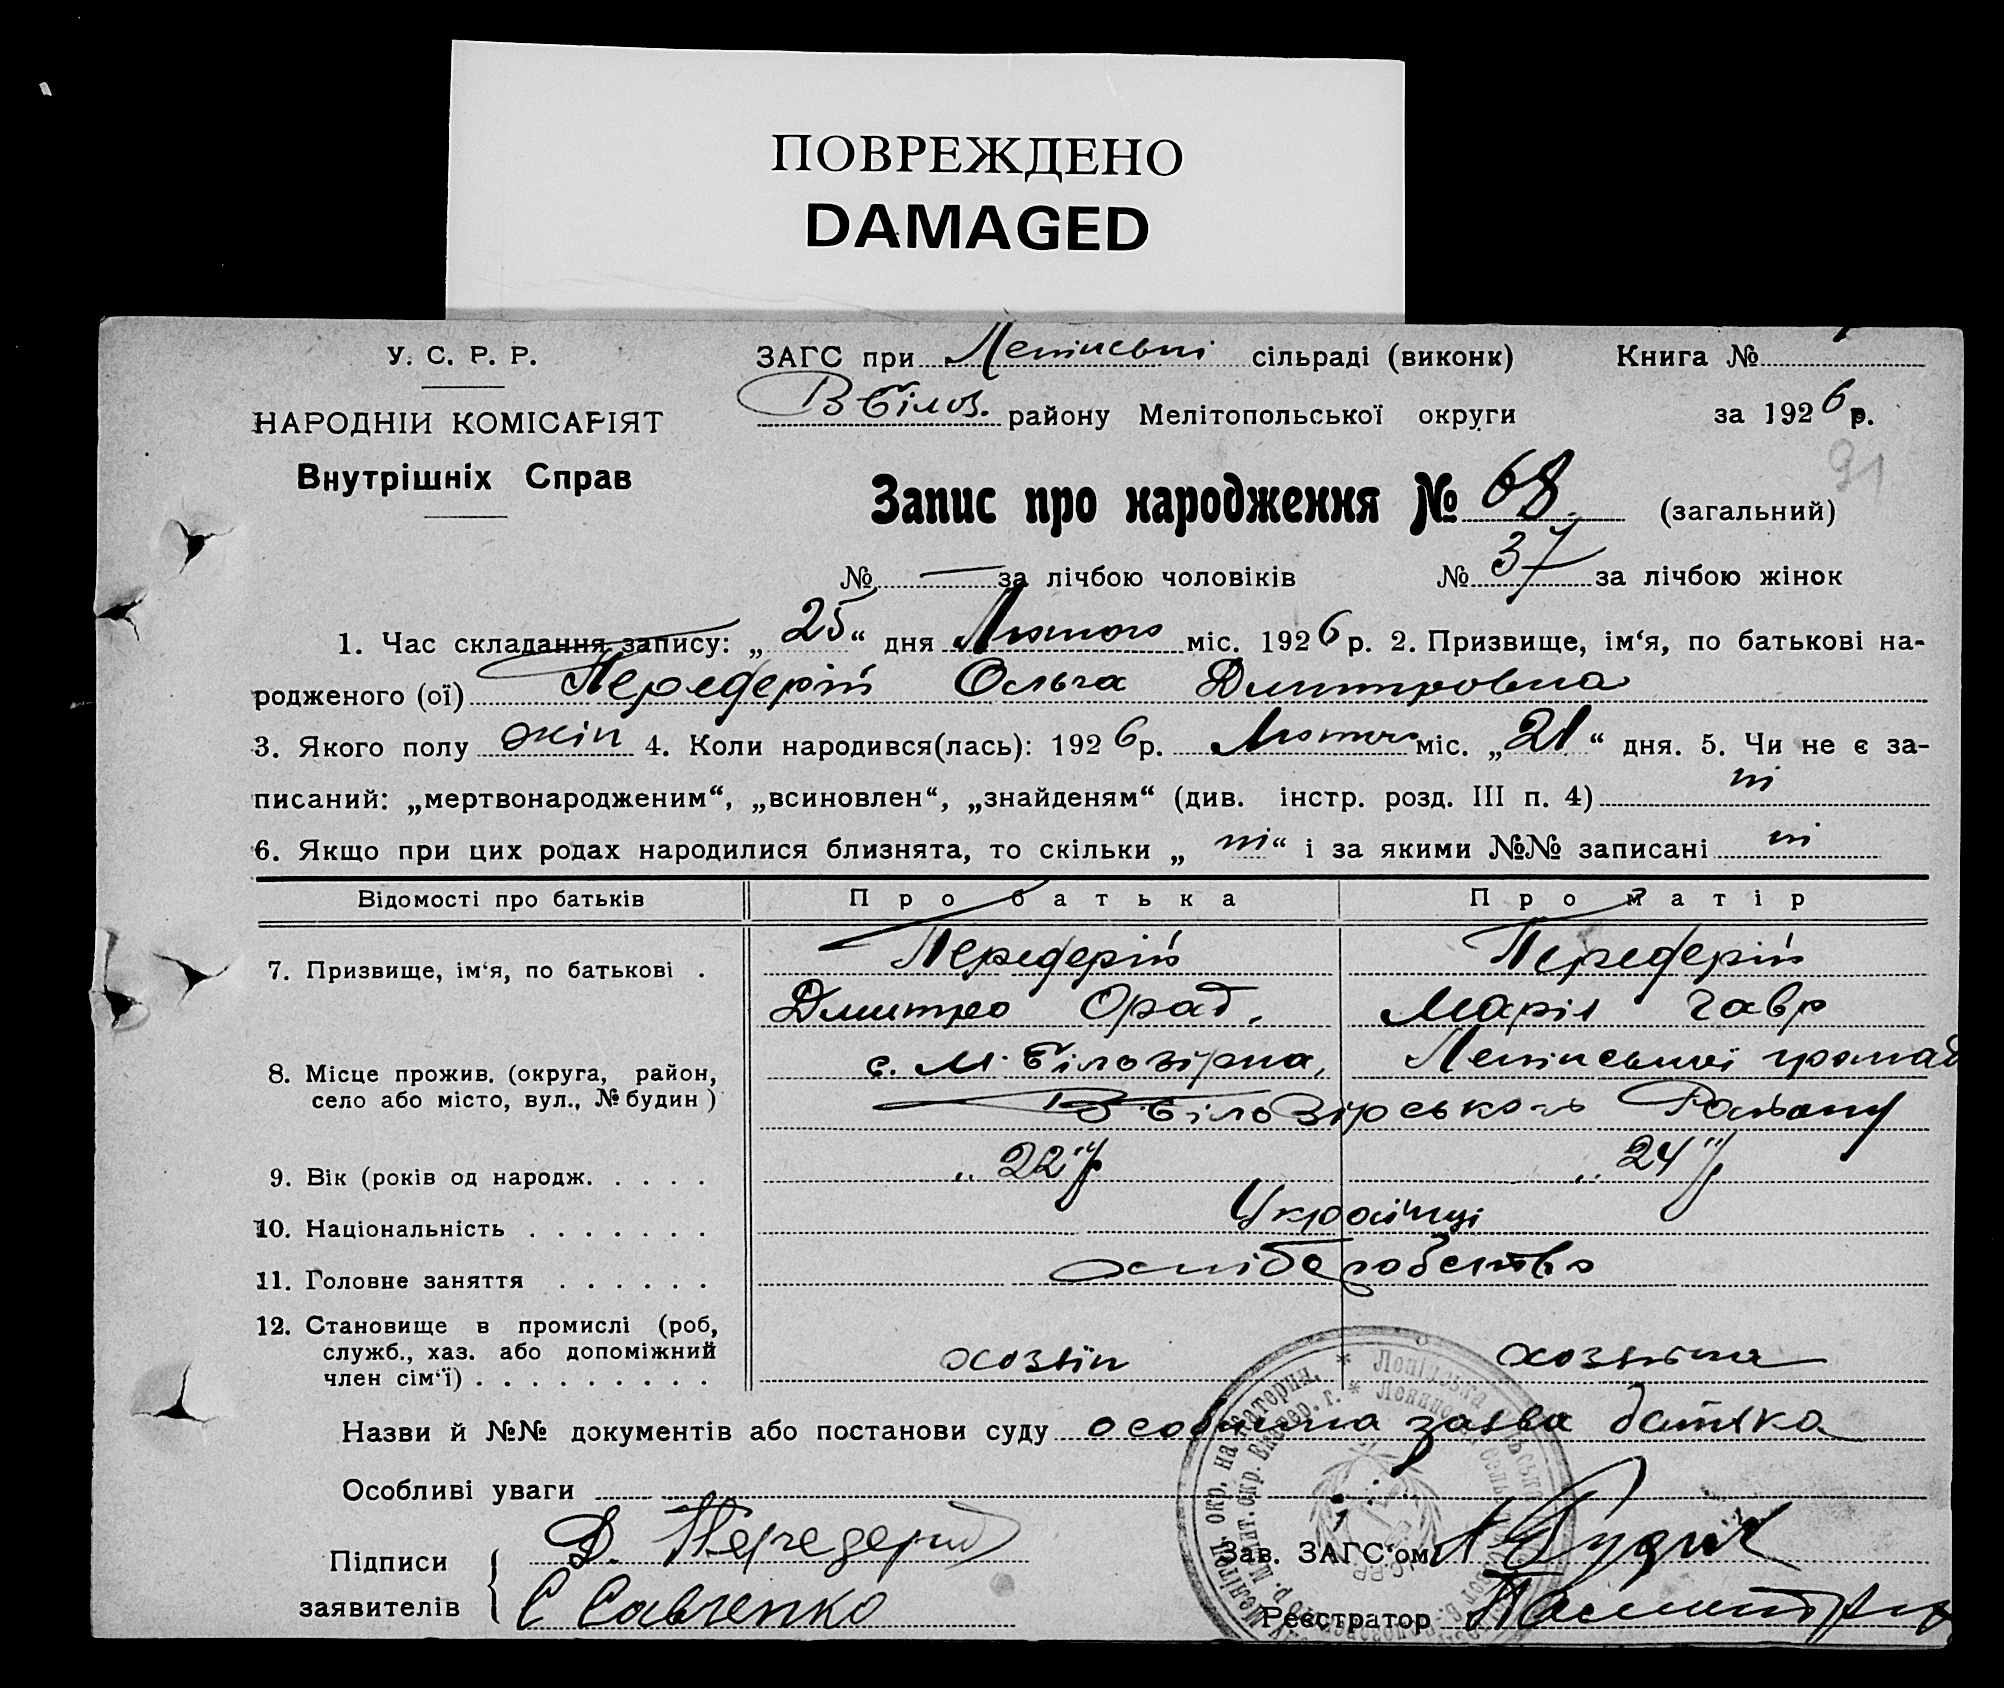 ПОВРЕЖДЕНО
DAMAGED
У. С. Р. Р.
НАРОДНІЙ КОМІСАРІЯТ
Внутрішніх Справ
ЗАГС при сільраді (виконк)
Книга №
В Білоз. району Мелітопольської округи
за 1926 р.
91
Запис про народження № 68. (загальний)
№ — за лічбою чоловіків № 37 за лічбою жінок
1. Час складання запису: „25“ дня Лютого міс. 1926 р. 2. Призвище, ім‘я, по батькові на-
родженого (ої) Передерій Ольга Дмитровна
3. Якого полу жін 4. Коли народився(лась): 1926 р. Лютого міс. „21“ дня. 5. Чи не є за-
писаний: „мертвонародженим“, „всиновлен“, „знайденям“ (див. інстр. розд. III п. 4) ні
6. Якщо при цих родах народилися близнята, то скільки „ні“ і за якими №№ записані ні
Відомості про батьків Про батька Про матір
7. Призвище, ім‘я, по батькові . Передерій Передерій
Дмитро Орад. Марія Гавр
8. Місце прожив. (округа, район, село або місто, вул., № будин) с. М. Білозірка,
В. Білозірського Району
9. Вік (років од народж. . . . . „22“ „24“
10. Національність . . . . . . . Українці
11. Головне заняття . . . . . .
12. Становище в промислі (роб, служб., хаз. або допоміжний член сім‘ї) . . . . . . . . . хозяїн хозяіка
Назви й №№ документів або постанови суду особиста заява батька
Особливі уваги
Підписи заявителів Д. Передерий
С Савченко
Зав. ЗАГС‘ом
Реєстратор